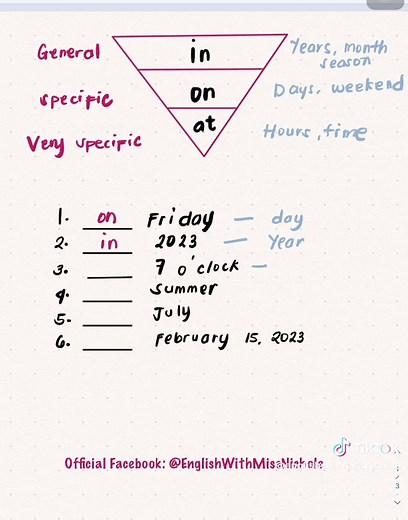 General in Years, month season
specific on Days, weekend
Very specific at Hours, time
1. on Friday — day
2. in 2023 — Year
3. ___ 7 o'clock —
4. ___ Summer
5. ___ July
6. ___ February 15, 2023
TikTok
Official Facebook: @EnglishWithMissNichole